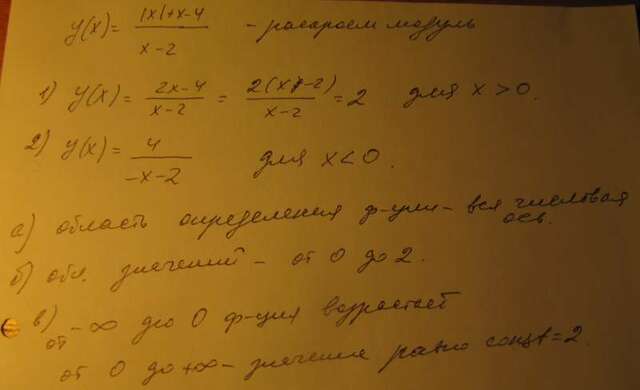 y(x) = |x|+x-4 / x-2 - раскроем модуль
1) y(x) = 2x-4 / x-2 = 2(x-2) / x-2 = 2 для x > 0.
2) y(x) = 4 / -x-2 для x < 0.
а) область определения ф-ции - вся числовая ось.
б) обл. значений - от 0 до 2.
в) от -∞ до 0 ф-ция возрастает
от 0 до +∞ - значение равно const = 2.